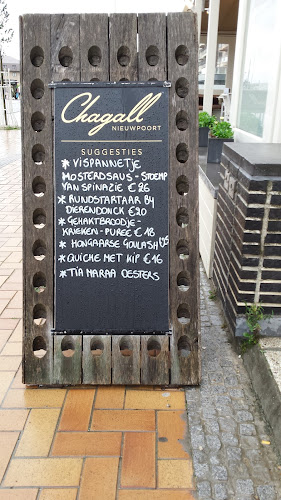 Chagall
NIEUWPOORT
SUGGESTIES
* VISPANNETJE
MOSTERDSAUS - STOEMP
VAN SPINAZIE €26
* RUNDSTARTAAR BY
DIERENDONCK €20
* GEHAKTBROODJE -
KRIEKEN - PUREE €18
* HONGAARSE GOULASH
* QUICHE MET KIP €16
* TIA MARAA OESTERS